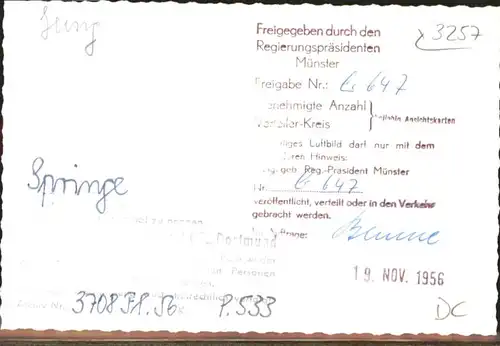 Jung
3257
Freigegeben durch den
Regierungspräsidenten
Münster
Freigabe Nr.: G 647
enehmigte Anzahl
Verteiler-Kreis
Ansichtskarten
iges Luftbild darf nur mit dem
Hinweis:
geb Reg.-Präsident Münster
Nr. G 647
veröffentlicht, verteilt oder in den Verkehr
gebracht werden.
Springe
Dortmund
Personen
19. NOV. 1956
3708 Fl. 56 P. 533
DC